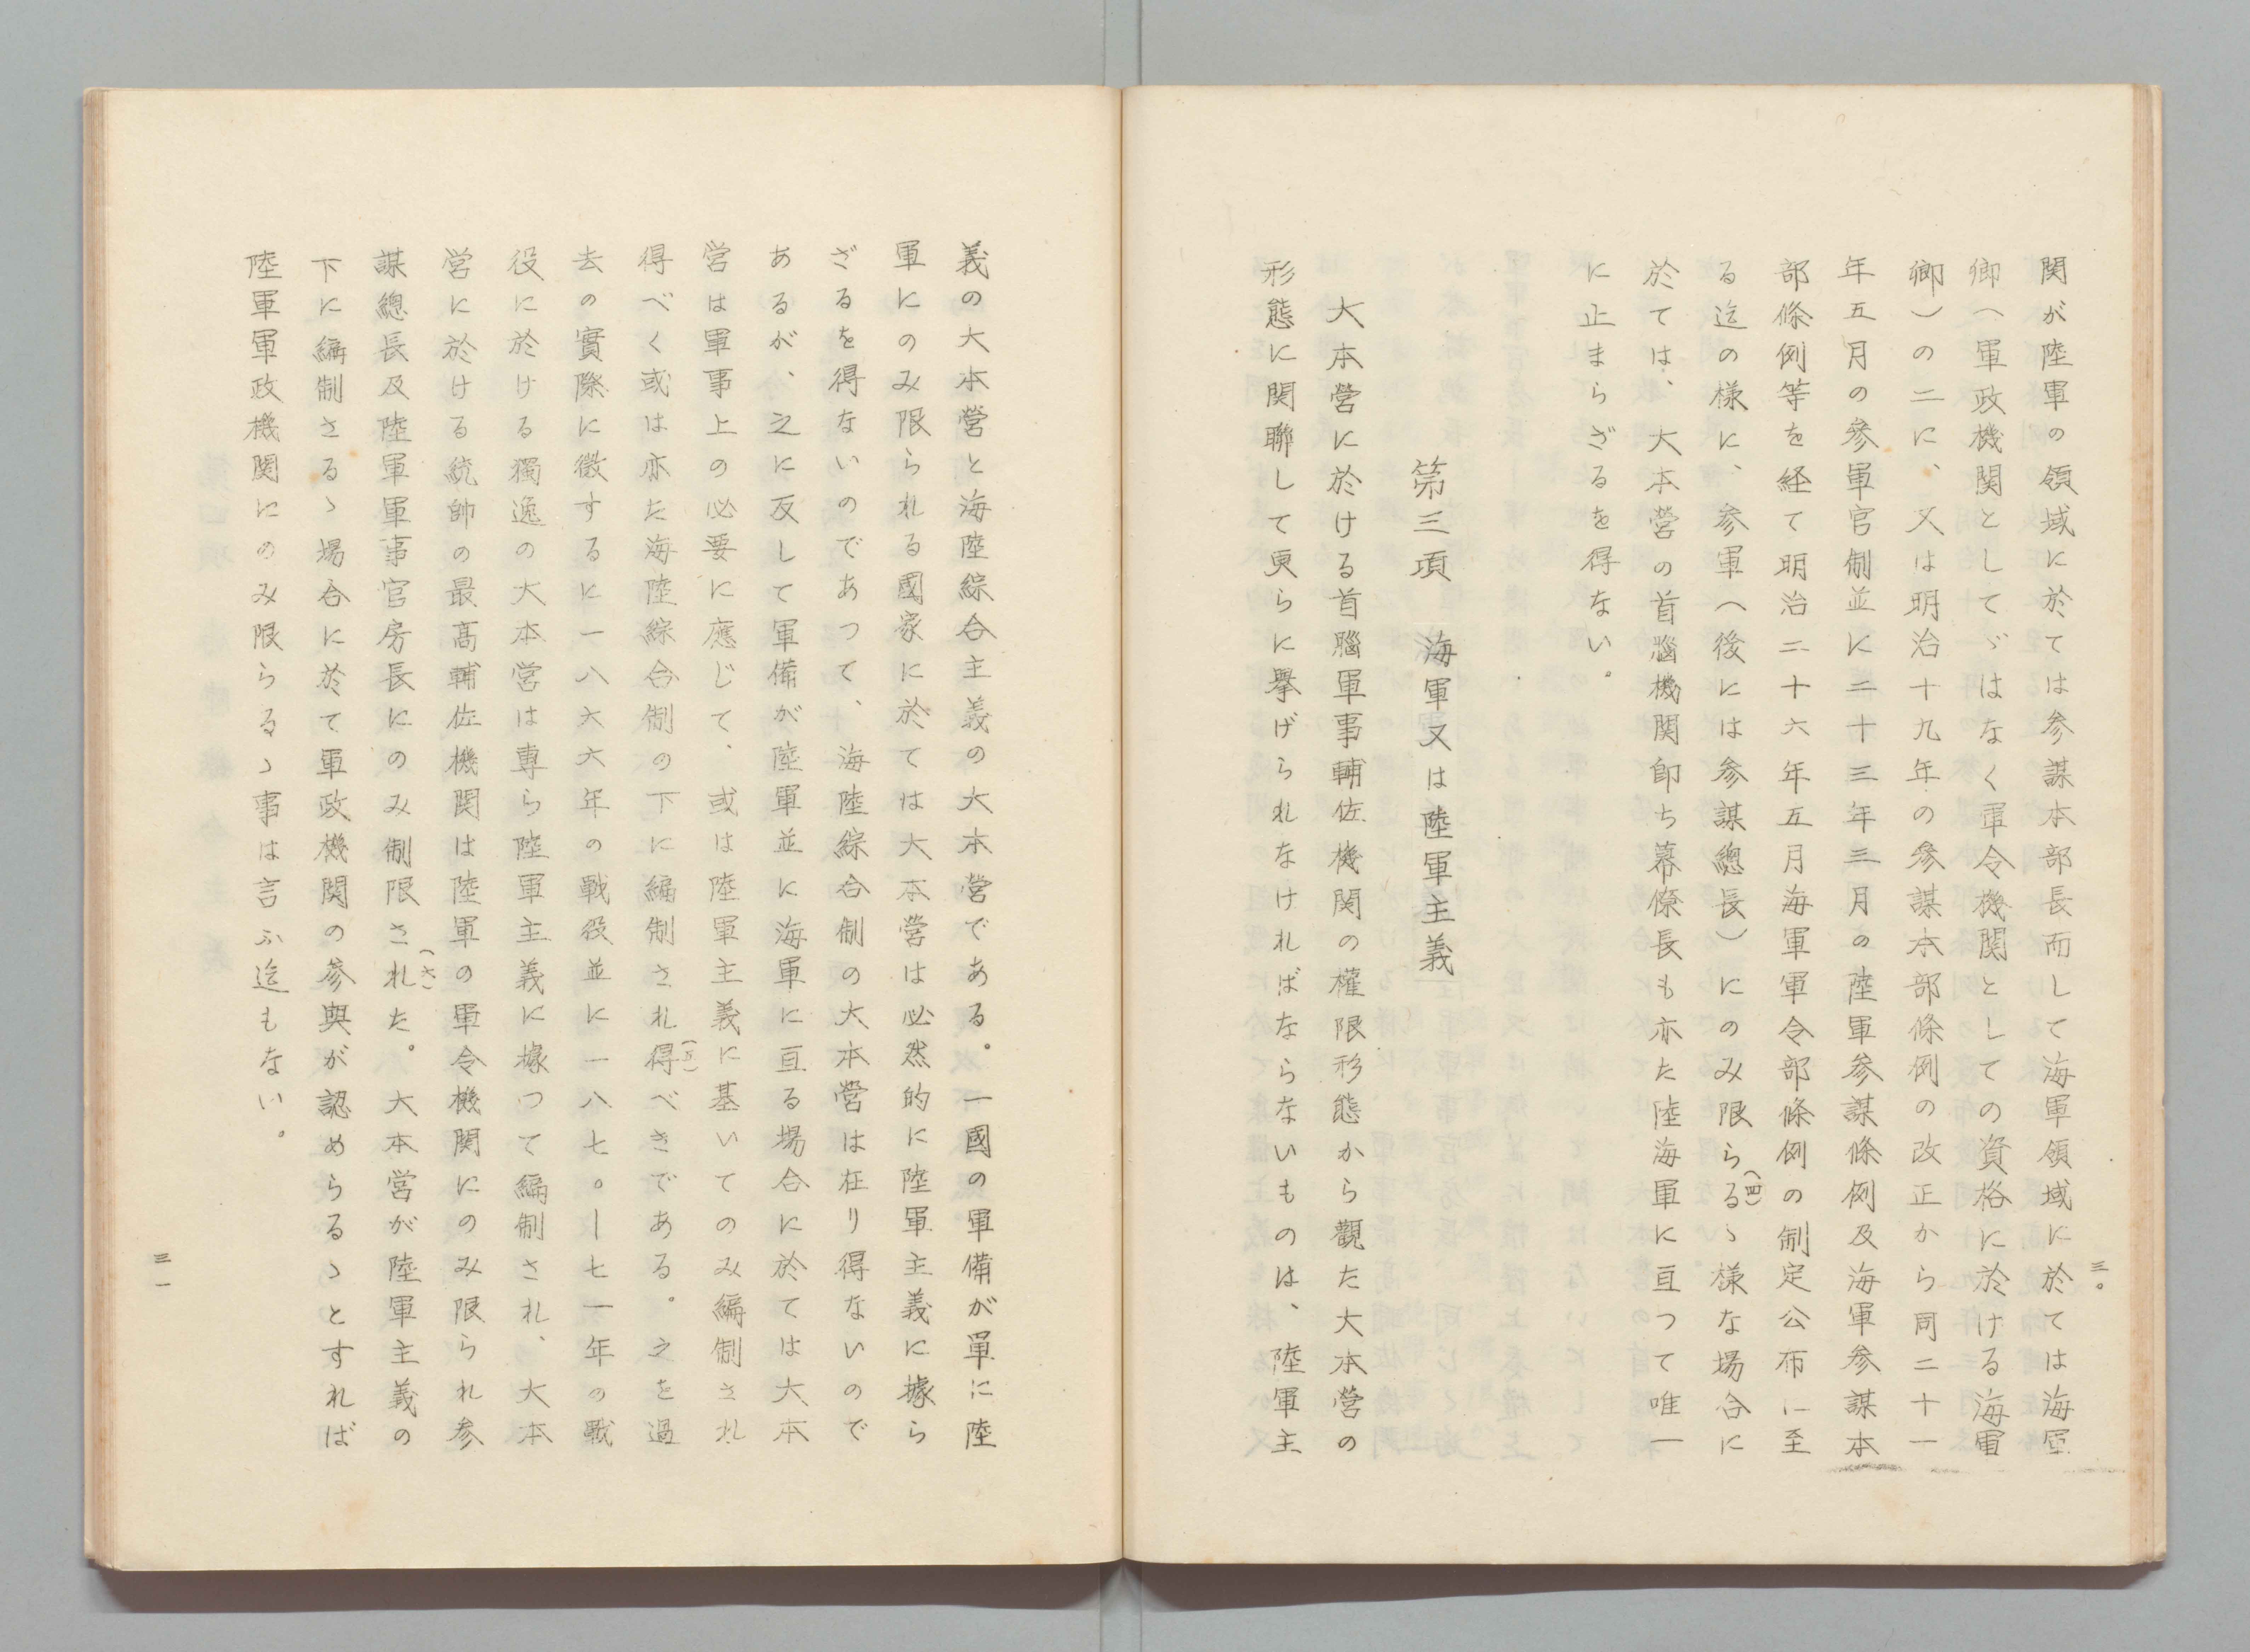 三〇
関が陸軍の領域に於ては参謀本部長而して海軍領域に於ては海軍
卿（軍政機関としてゞはなく軍令機関としての資格に於ける海軍
卿）の二に、又は明治十九年の參謀本部條例の改正から同二十一
年五月の參軍官制並に二十三年三月の陸軍参謀條例及海軍参謀本
部條例等を経て明治二十六年五月海軍軍令部條例の制定公布に至
る迄の様に、参軍（後には参謀總長）にのみ限らるゝ様な場合に（四）
於ては、大本営の首腦機関卽ち幕僚長も亦た陸海軍に亘つて唯一
に止まらざるを得ない。
第三項　海軍又は陸軍主義
大本營に於ける首腦軍事輔佐機関の權限形態から觀た大本営の
形態に関聯して更らに擧げられなければならないものは、陸軍主
義の大本營と海陸綜合主義の大本営である。一國の軍備が單に陸
軍にのみ限られる國家に於ては大本營は必然的に陸軍主義に據ら
ざるを得ないのであつて、海陸綜合制の大本營は在り得ないので
あるが、之に反して軍備が陸軍並に海軍に亘る場合に於ては大本
営は軍事上の必要に應じて、或は陸軍主義に基いてのみ編制され
得べく或は亦た海陸綜合制の下に編制され得べきである。之を過（五）
去の實際に徴するに一八六六年の戰役並に一八七〇ー七一年の戰
役に於ける獨逸の大本営は専ら陸軍主義に據つて編制され、大本
営に於ける統帥の最高輔佐機関は陸軍の軍令機関にのみ限られ参
謀總長及陸軍軍事官房長にのみ制限された。大本営が陸軍主義の（六）
下に編制さるゝ場合に於て軍政機関の参與が認めらるゝとすれば
陸軍軍政機関にのみ限らるゝ事は言ふ迄もない。
三一